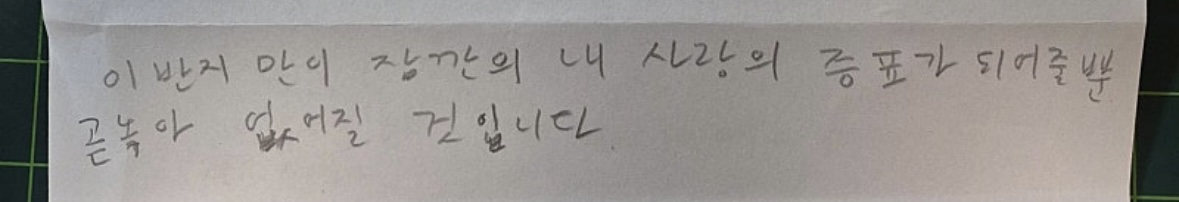 이 반지 만이 잠깐의 내 사랑의 증표가 되어줄 뿐
곧 녹아 없어질 것입니다